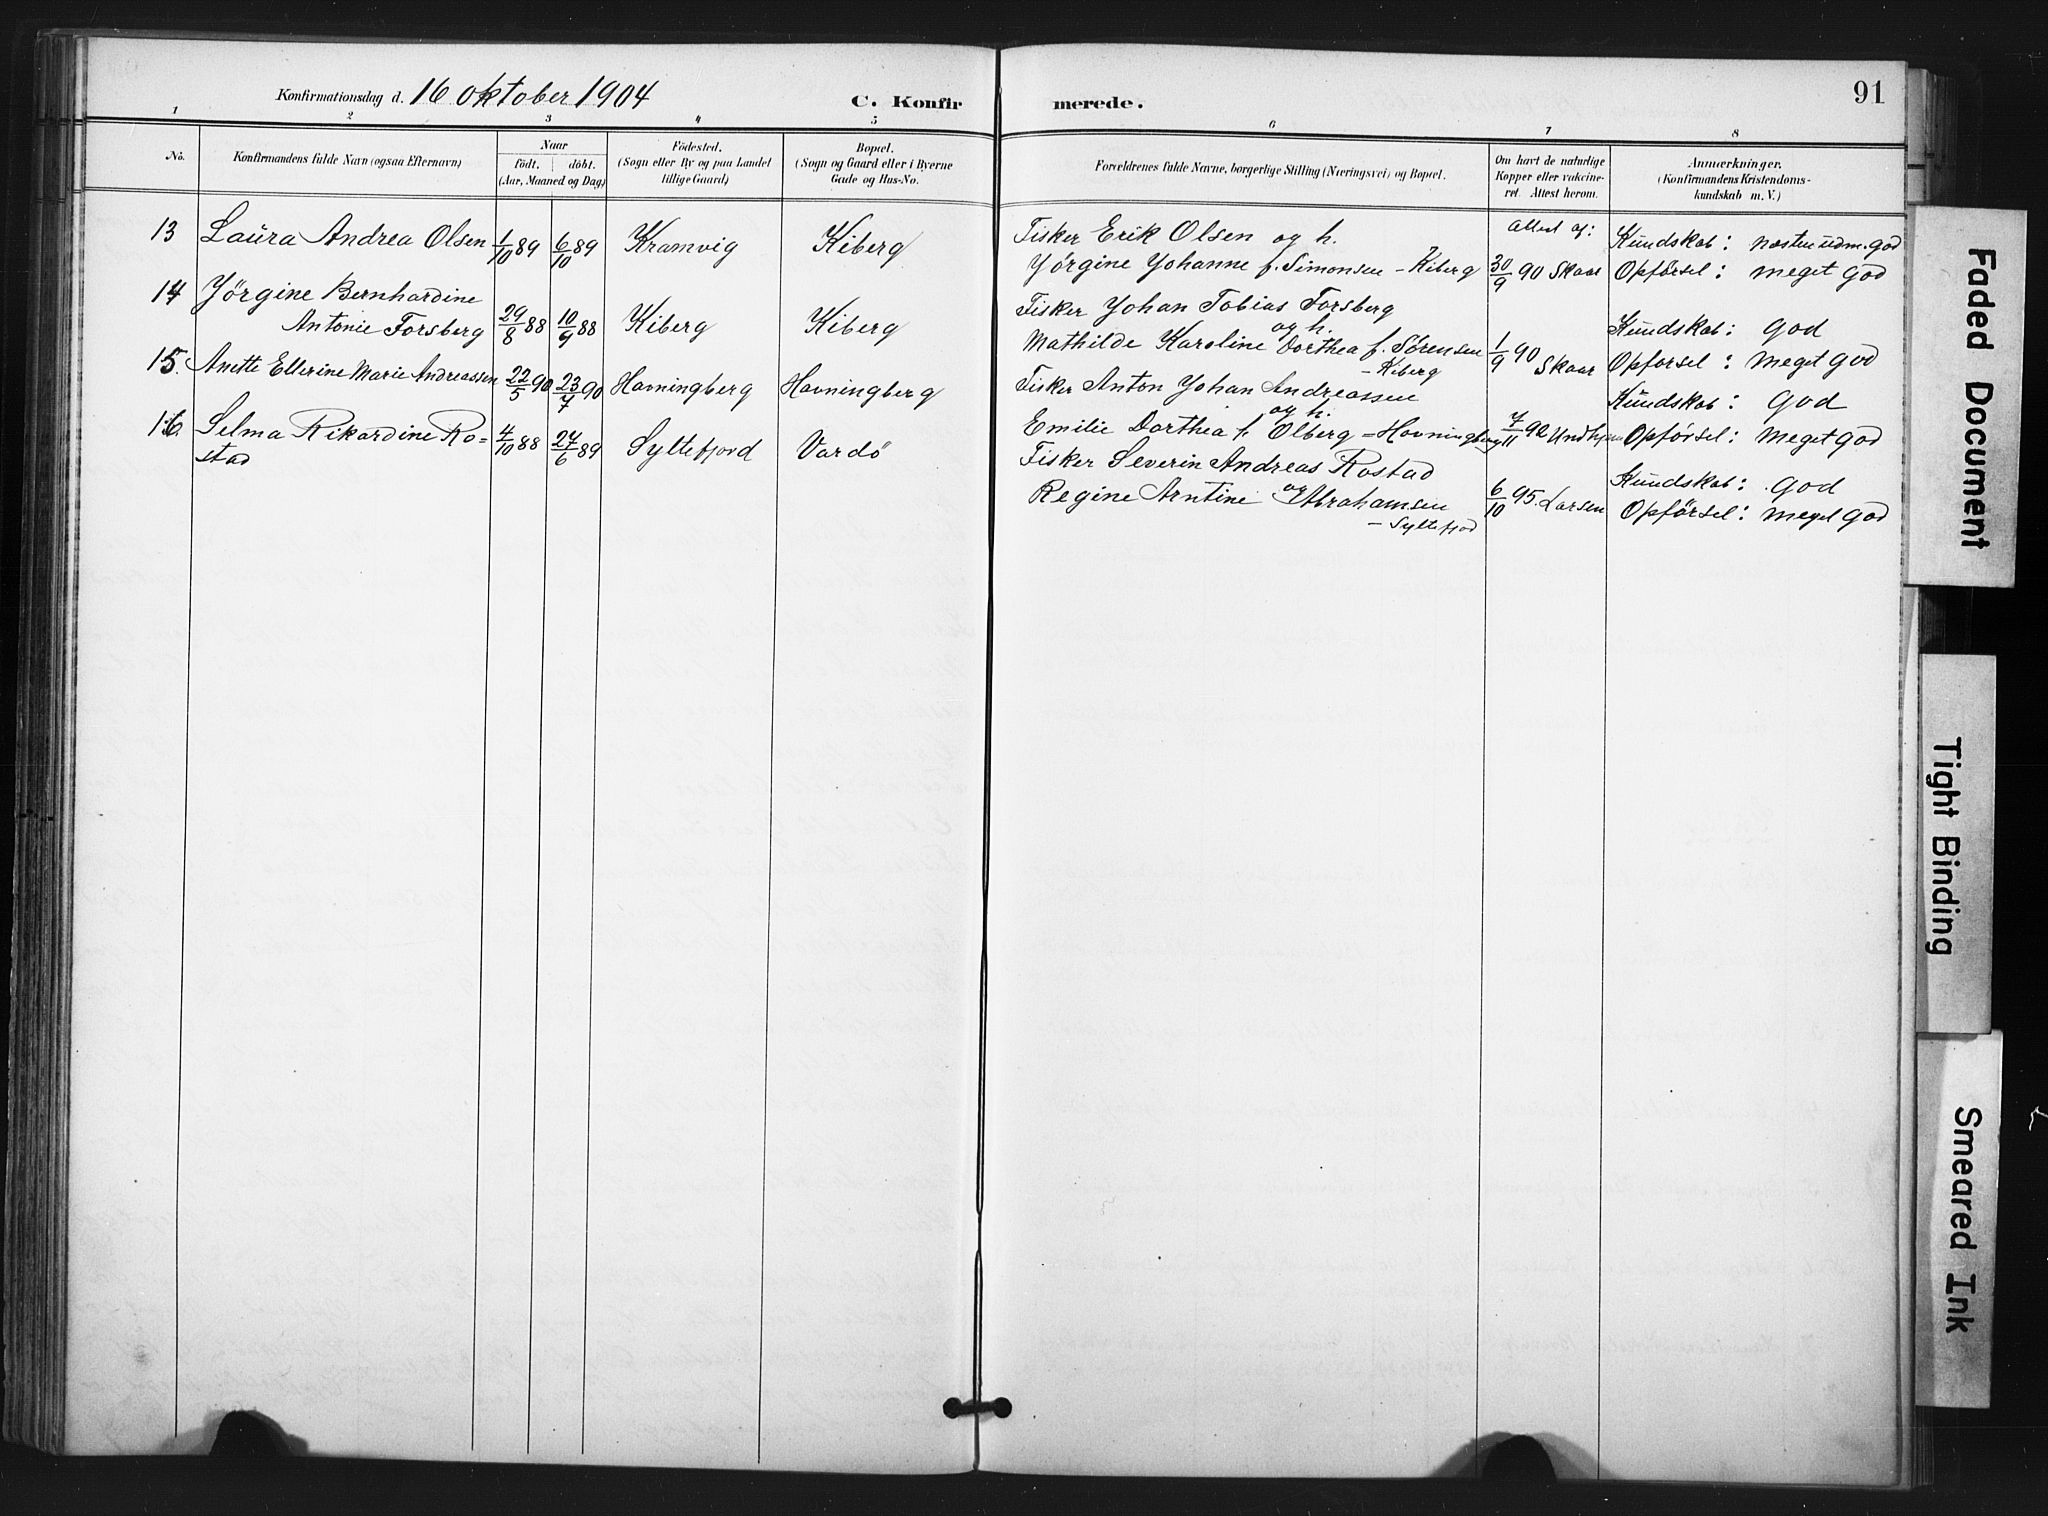 Konfirmationsdag d. 16 oktober 1904
C. Konfirmerede.
91
1 2 3 4 5 6 7 8
No.
Konfirmandens fulde Navn (ogsaa Efternavn)
Naar
födt. döbt.
(Aar, Maaned og Dag)
Födested.
(Sogn eller By og paa Landet
tillige Gaard)
Bopæl.
(Sogn og Gaard eller i Byerne
Gade og Hus-No.
Forældrenes fulde Navne, borgerlige Stilling (Næringsvei) og Bopæl.
Om havt de naturlige
Kopper eller vakcine-
ret. Attest herom.
Anmærkninger.
(Konfirmandens Kristendoms-
kundskab m. V.)
13 Laura Andrea Olsen 1/10 89 6/10 89 Kramvig Kiberg
Fisker Erik Olsen og h.
Yörgine Yohanne f. Simonsen - Kiberg
Attest af:
30/9 90 Skaar
Kundskab: næsten udm. god
Opførsel: meget god
14 Yörgine Bernhardine
Antonie Forsberg 29/8 88 10/9 88 Kiberg Kiberg
Fisker Yohan Tobias Forsberg
og h.
Mathilde Karoline Dorthea f. Sørensen
- Kiberg
1/9 90 Skaar
Kundskab: god
Opførsel: meget god
15. Anette Ellerine Marie Andreassen 22/5 90 23/7 90 Havningberg Havningberg
Fisker Anton Yohan Andreassen
og h.
Emilie Dorthea f. Olberg - Havningberg
7/11 92
Kundskab: god
Opførsel: meget god
16. Selma Rikardine Ro-
stad 4/10 88 24/6 89 Syltefjord Vardö
Fisker Severin Andreas Rostad
og
Regine Arntine Abrahamsen
- Syltefjod
6/10 95. Larsen
Kundskab: god
Opførsel: meget god
Faded Document
Tight Binding
Smeared Ink